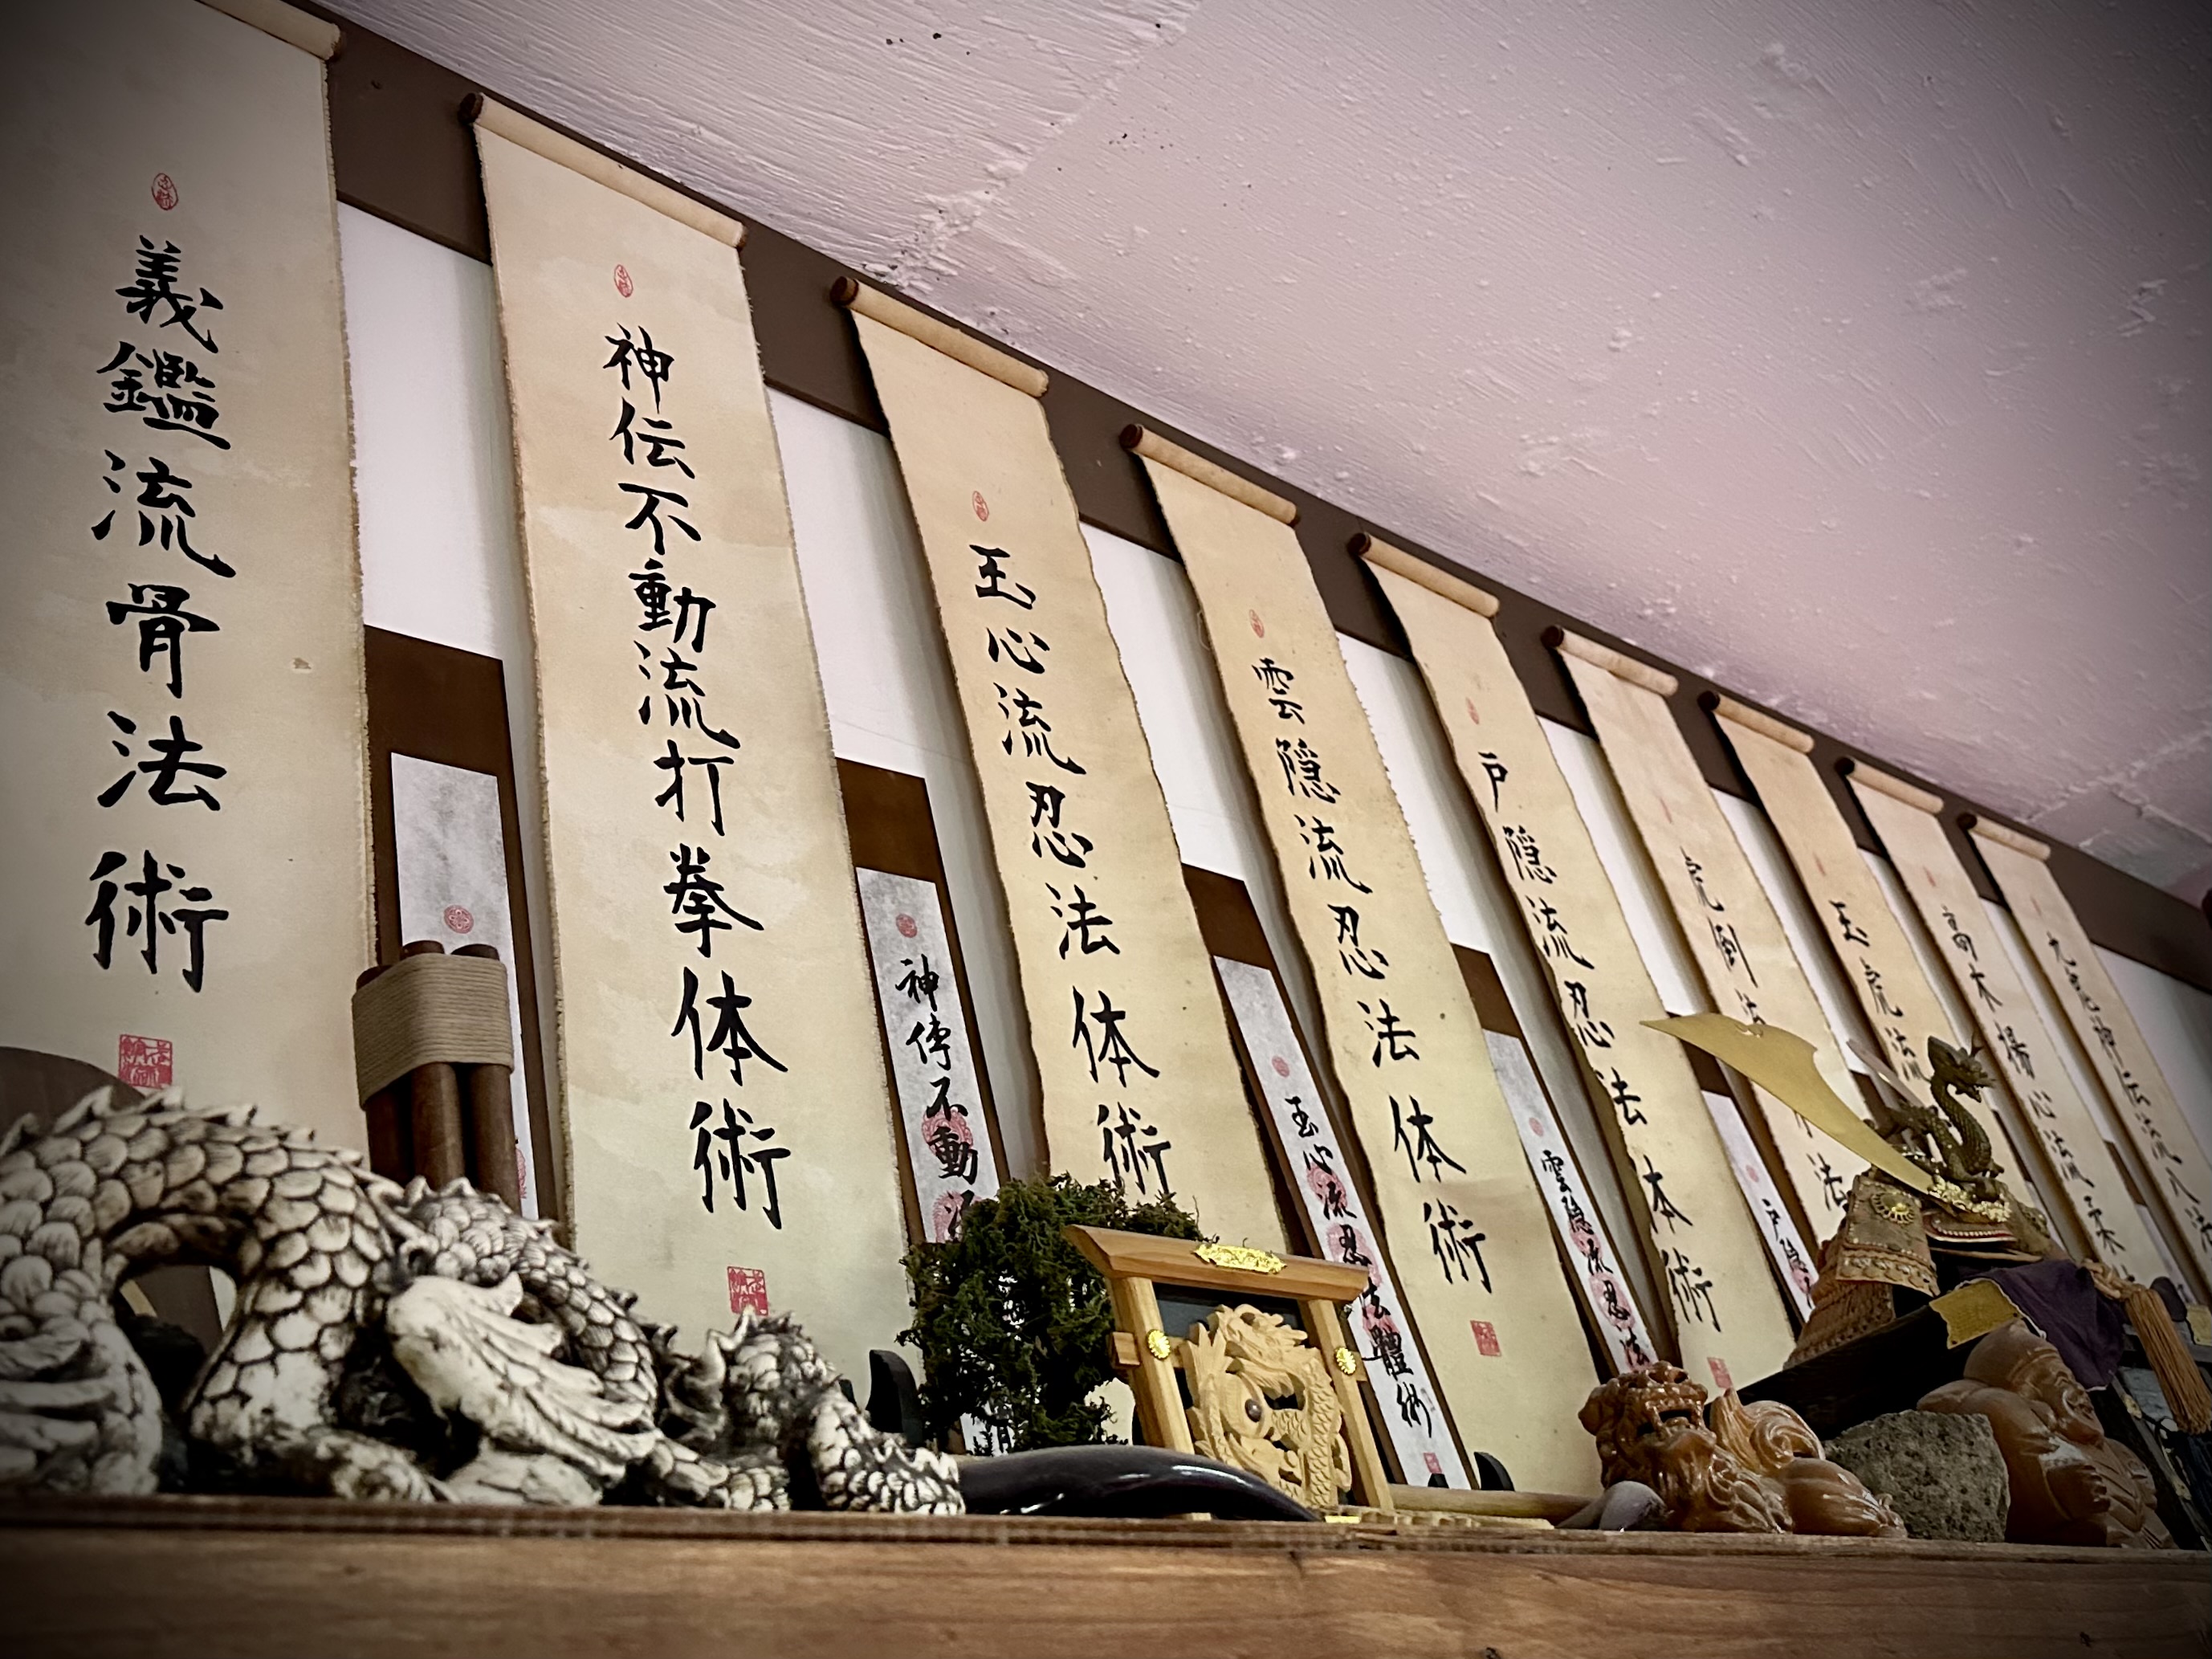 義鑑流骨法術
神伝不動流打拳体術
神傳不動流
玉心流忍法体術
玉心流忍法體術
雲隠流忍法体術
雲隠流忍法
戸隠流忍法体術
戸隠
虎倒法
玉虎流
高木揚心流柔
九鬼神伝流八法